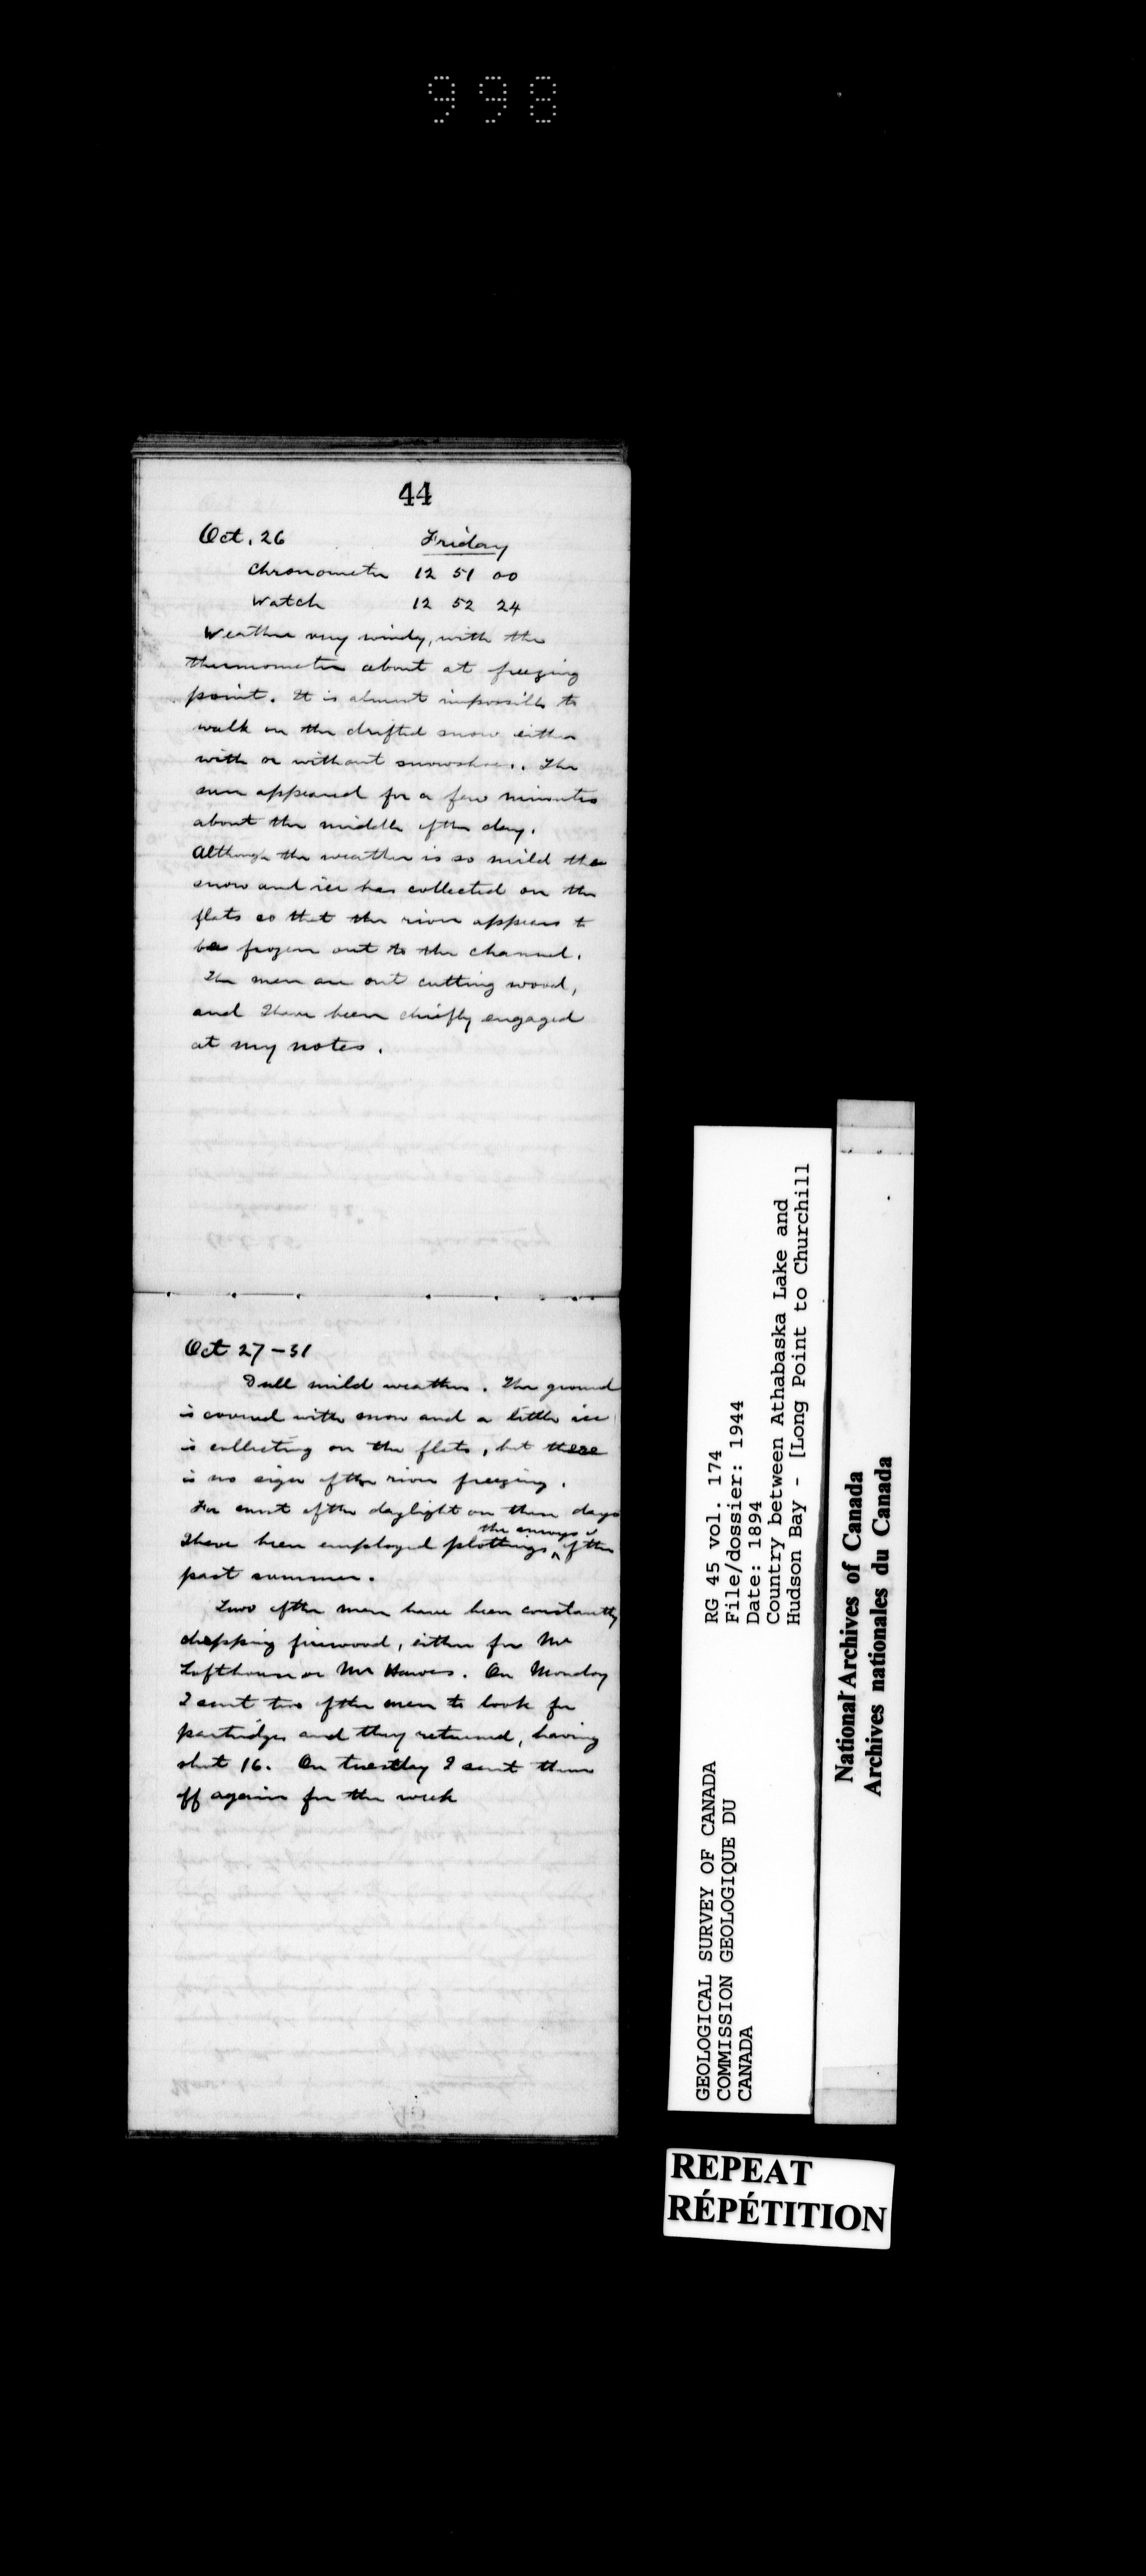 998
44
Oct. 26 Friday
Chronometer 12 51 00
Watch 12 52 24
Weather very windy, with the
thermometer about at freezing
point. It is almost impossible to
walk on the drifted snow either
with or without snowshoes. The
sun appeared for a few minutes
about the middle of the day.
Although the weather is so mild the
snow and ice has collected on the
flats so that the river appears to
be frozen out to the channel.
The men are out cutting wood,
and I have been chiefly engaged
at my notes.
Oct 27-31
Dull mild weather. The ground
is covered with snow and a little ice
is collecting on the flats, but there
is no sign of the river freezing.
For most of the daylight on these days
the surveys
I have been employed plotting of the
past summer.
Two of the men have been constantly
chopping firewood, either for Mr
Lofthouse or Mr Hawes. On Monday
I sent two of the men to look for
partridges and they returned, having
shot 16. On tuesday I sent them
off again for the week
GEOLOGICAL SURVEY OF CANADA
COMMISSION GEOLOGIQUE DU
CANADA
RG 45 vol. 174
File/dossier: 1944
Date: 1894
Country between Athabaska Lake and
Hudson Bay - [Long Point to Churchill
National Archives of Canada
Archives nationales du Canada
REPEAT
RÉPÉTITION